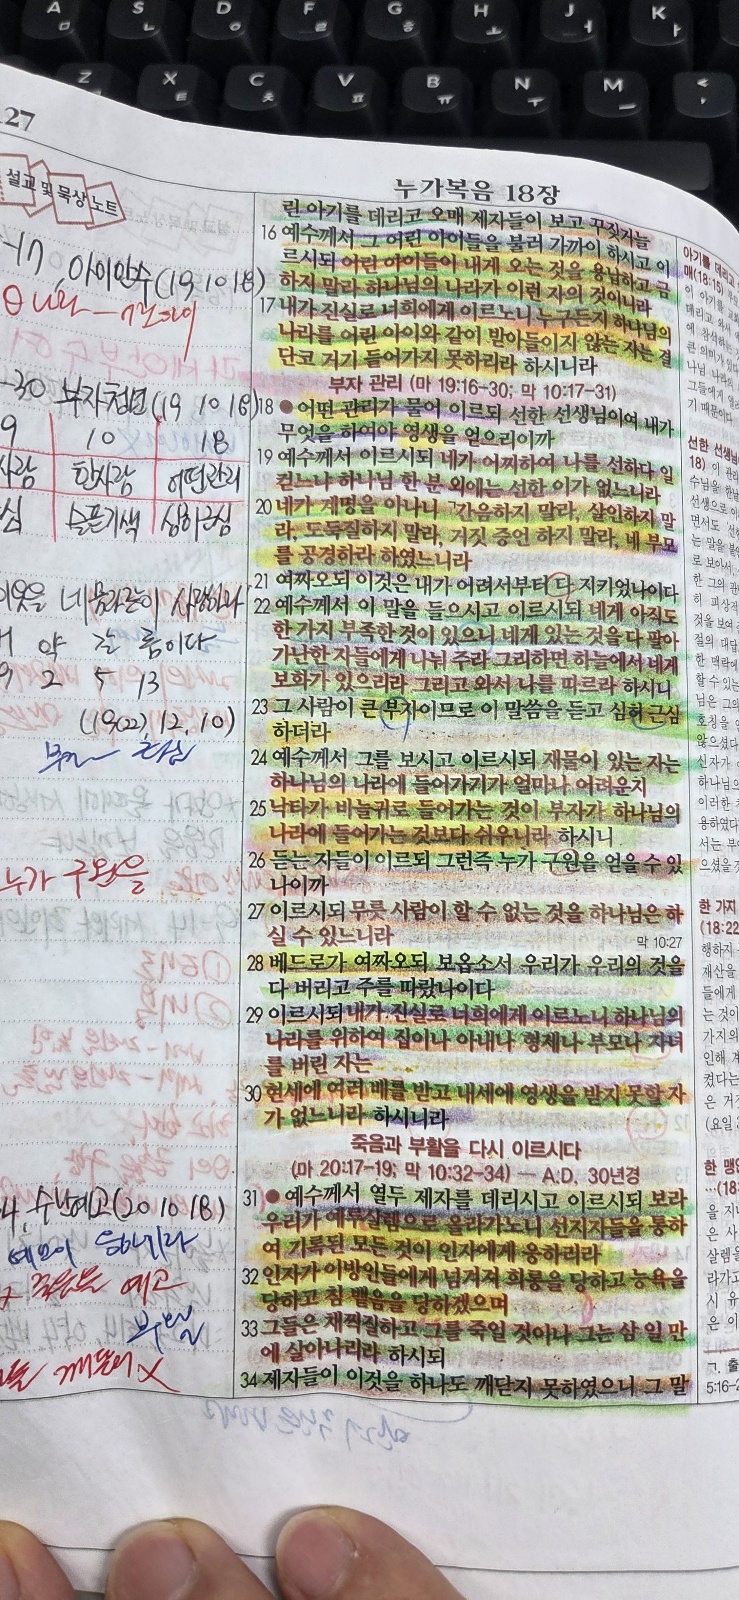 A ㅁ
S ㄴ
D ㅇ
F ㄹ
G ㅎ
H ㅗ
J ㅓ
K ㅏ
Z ㅋ
X ㅌ
C ㅊ
V ㅍ
B ㅠ
N ㅜ
M ㅡ
27
설교 및 묵상 노트
-17 아이안수 (19 10 18)
-30 부자청년 (19 10 18)
9 10 18
사랑 한사람 어떤관리
심 슬픈기색 심히근심
이웃을 네 몸같이 사랑하라
약 갈 롬이다
9 2 5 13
(19(22), 12, 10)
누가 구원을
수난예고 (20 10 18)
예고
부활
누가복음 18장
린 아기를 데리고 오매 제자들이 보고 꾸짖거늘
16 예수께서 그 어린 아이들을 불러 가까이 하시고 이
르시되 어린 아이들이 내게 오는 것을 용납하고 금
하지 말라 하나님의 나라가 이런 자의 것이니라
17 내가 진실로 너희에게 이르노니 누구든지 하나님의
나라를 어린 아이와 같이 받아들이지 않는 자는 결
단코 거기 들어가지 못하리라 하시니라
부자 관리 (마 19:16-30; 막 10:17-31)
18 ● 어떤 관리가 물어 이르되 선한 선생님이여 내가
무엇을 하여야 영생을 얻으리이까
19 예수께서 이르시되 네가 어찌하여 나를 선하다 일
컫느냐 하나님 한 분 외에는 선한 이가 없느니라
20 네가 계명을 아나니 간음하지 말라, 살인하지 말
라, 도둑질하지 말라, 거짓 증언 하지 말라, 네 부모
를 공경하라 하였느니라
21 여짜오되 이것은 내가 어려서부터 다 지키었나이다
22 예수께서 이 말을 들으시고 이르시되 네게 아직도
한 가지 부족한 것이 있으니 네게 있는 것을 다 팔아
가난한 자들에게 나눠 주라 그리하면 하늘에서 네게
보화가 있으리라 그리고 와서 나를 따르라 하시니
23 그 사람이 큰 부자이므로 이 말씀을 듣고 심히 근심
하더라
24 예수께서 그를 보시고 이르시되 재물이 있는 자는
하나님의 나라에 들어가기가 얼마나 어려운지
25 낙타가 바늘귀로 들어가는 것이 부자가 하나님의
나라에 들어가는 것보다 쉬우니라 하시니
26 듣는 자들이 이르되 그런즉 누가 구원을 얻을 수 있
나이까
27 이르시되 무릇 사람이 할 수 없는 것을 하나님은 하
실 수 있느니라 막 10:27
28 베드로가 여짜오되 보옵소서 우리가 우리의 것을
다 버리고 주를 따랐나이다
29 이르시되 내가 진실로 너희에게 이르노니 하나님의
나라를 위하여 집이나 아내나 형제나 부모나 자녀
를 버린 자는
30 현세에 여러 배를 받고 내세에 영생을 받지 못할 자
가 없느니라 하시니라
죽음과 부활을 다시 이르시다
(마 20:17-19; 막 10:32-34) — A.D. 30년경
31 ● 예수께서 열두 제자를 데리시고 이르시되 보라
우리가 예루살렘으로 올라가노니 선지자들을 통하
여 기록된 모든 것이 인자에게 응하리라
32 인자가 이방인들에게 넘겨져 희롱을 당하고 능욕을
당하고 침 뱉음을 당하겠으며
33 그들은 채찍질하고 그를 죽일 것이나 그는 삼 일 만
에 살아나리라 하시되
34 제자들이 이것을 하나도 깨닫지 못하였으니 그 말